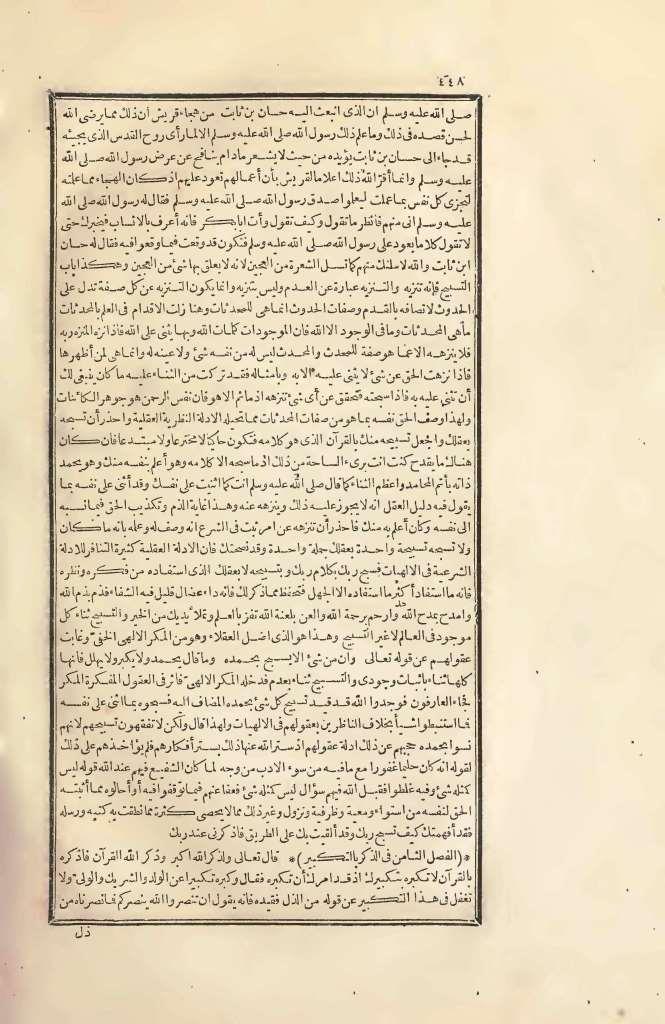 ٤٤٨
صلى الله عليه وسلم ان الذى انبعث اليه حسان بن ثابت من هجاء قريش ان ذلك مما يرضى الله
لحسن قصده فى ذلك وما علم ذلك رسول الله صلى الله عليه وسلم الا لما رأى روح القدس الذى يجيئه
قد جاء الى حسان بن ثابت يؤيده من حيث لا يشعر مادام ينافح عن عرض رسول الله صلى الله
عليه وسلم وانما أقر الله ذلك اعلاما لقريش بأن أعمالهم تعود عليهم اذ كان الهجاء مما عملته
لتجزى كل نفس بما عملت ليعلموا صدق رسول الله صلى الله عليه وسلم فقال له رسول الله صلى الله
عليه وسلم انى منهم فانظر ما تقول وكيف تقول وأت ابا بكر فانه أعرف بالانساب فيخبرك حتى
لا تقول كلاما يعود على رسول الله صلى الله عليه وسلم فتكون قد وقعت فيما وقعوا فيه فقال له حسان
ابن ثابت والله لاسلنك منهم كما تسل الشعرة من العجين لانه لا يعلق بها شئ من العجين وهكذا باب
التسبيح فانه تنزيه والتنزيه عبارة عن العدم وليس بتنزيه وانما يكون التنزيه عن كل صفة تدل على
الحدوث لاتصافه بالقدم وصفات الحدوث انما هى للمحدثات وهنا زلت الاقدام فى العلم بالمحدثات
ما هى المحدثات وما فى الوجود الا الله فان الموجودات كلمات الله وبها يثنى على الله فاذا نزه المنزه ربه
فلا ينزهه الا عما هو صفة للمحدث والمحدث ليس له من نفسه شئ ولا عينه له وانما هى لمن أظهرها
فاذا نزهت الحق عن شئ لا يثنى عليه الا به وبامثاله فقد تركت من الثناء عليه ما كان ينبغى لك
أن تثنى عليه به فاذا سبحته فتحقق عن أى شئ تنزهه اذ ما ثم الا هو فان نفس الرحمن هو جوهر الكائنات
ولهذا وصف الحق نفسه بما هو من صفات المحدثات مما تحيله الادلة النظرية العقلية واحذر أن تسبحه
بعقلك واجعل تسبيحه منك بالقرآن الذى هو كلامه فتكون حاكيا لا مخترعا ولا مبتدعا فان كان
هنالك ما يقدح كنت انت برىء الساحة من ذلك اذ ما سبحه الا كلامه وهو أعلم بنفسه منك وهو يحمد
ذاته بأتم المحامد واعظم الثناء كما قال صلى الله عليه وسلم انت كما اثنيت على نفسك وقد أثنى على نفسه بما
يقول فيه دليل العقل انه لا يجوز عليه ذلك وينزهه عنه وهذا غاية الذم وتكذيب الحق فيما نسبه
الى نفسه وكان أعلم به منك فاحذر أن تنزهه عن امر ثبت فى الشرع انه وصف له وعمله بانه ما كان
ولا تسبحه تسبيحة واحدة بعقلك جملة واحدة وقد نصحتك فان الادلة العقلية كثيرة التنافر للادلة
الشرعية فى الالهيات فسبح ربك بكلام ربك وبتسبيحه لا بعقلك الذى استفاده من فكره ونظره
فانه ما استفاد أكثر ما استفاده الا الجهل فتحفظ مما ذكر لك فانه داء عضال قليل فيه الشفاء فذم بذم الله
وامدح بمدح الله وارحم برحمة الله والعن بلعنة الله تفز بالعلم وتملأ يديك من الخير والتسبيح ثناء كل
موجود فى العالم لا غير التسبيح وهذا هو الذى اضل العقلاء وهو من المكر الالهى الخفى وغابت
عقولهم عن قوله تعالى وان من شئ الا يسبح بحمده وما قال يحمد ولا يكبر ولا يهلل فانها
كلها ثناء باثبات وجودى والتسبيح ثناء بعدم فدخله المكر الالهى فاثر فى العقول المفكرة المكر
فجاء العارفون فوجدوا الله قد قيد تسبيح كل شئ بحمده المضاف اليه فسبحوه بما اثنى على نفسه
فما استنبطوا شيأ بخلاف الناظرين بعقولهم فى الالهيات ولهذا قال ولكن لا تفقهون تسبيحهم لانهم
نسوا بحمده حجبهم عن ذلك ادلة عقولهم اذ ستر الله عنها ذلك بستر أفكارهم فلم يؤاخذهم على ذلك
لقوله انه كان حليما غفورا مع ما فيه من سوء الادب من وجه لما كان الشفيع فيهم عند الله قوله ليس
كمثله شئ وفيه غلطوا فقبل الله فيهم سؤال ليس كمثله شئ فعفا عنهم فيما توقفوا فيه أو أحالوه مما أثبته
الحق لنفسه من استواء ومعية وظرفية ونزول وغير ذلك مما لا يحصى كثرة مما نطقت به كتبه ورسله
فقد أفهمتك كيف تسبح ربك وقد ألقيت بك على الطريق فاذكرنى عند ربك
*(الفصل الثامن فى الذكر بالتكبير)* قال تعالى ولذكر الله اكبر وذكر الله القرآن فاذكره
بالقرآن لا تكبره بتكبيرك اذ قد امرك أن تكبره فقال وكبره تكبيرا عن الولد والشريك والولى ولا
تغفل فى هذا التكبير عن قوله من الذل فقيده فانه يقول ان تنصروا الله ينصركم فانصرناه من
ذل